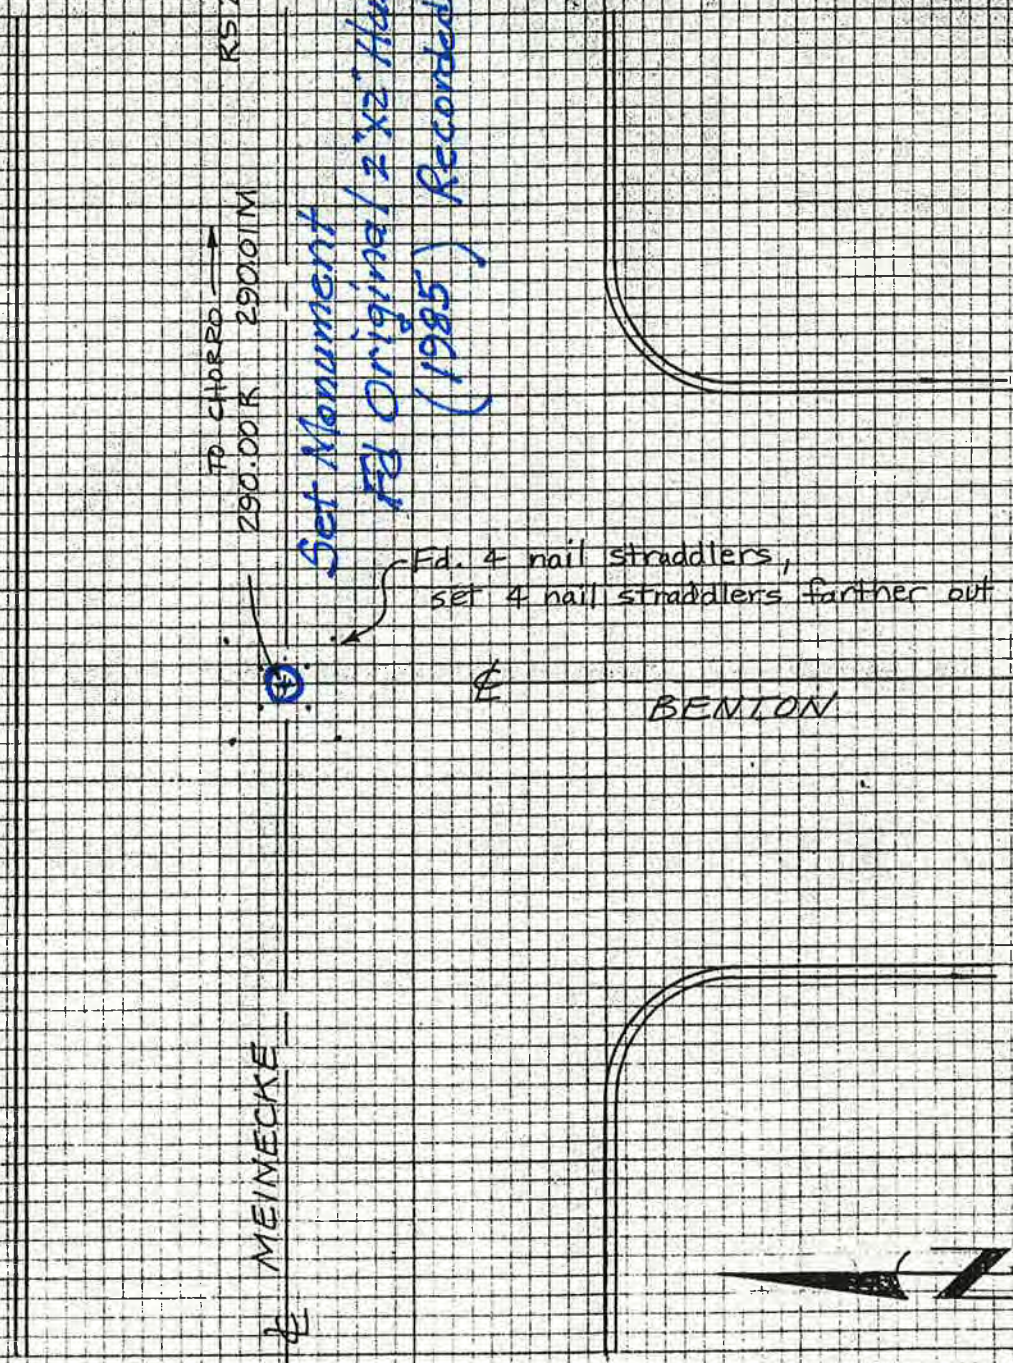 TO CHORRO
290.00 R 290.01 M RS
Set Monument
Fd Original 2"x2"
(1985) Recorded
Fd. 4 nail straddlers,
set 4 nail straddlers farther out
℄
BENTON
℄ MEINECKE